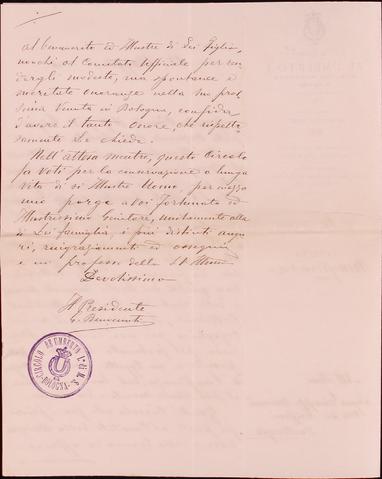 al Benemerito ed Illustre di Lei Figlio,
nonchè al Comitato Ufficiale per ren
dergli modeste, ma spontanee e
meritate onoranze nella sua pros
sima Venuta in Bologna, confida
d'avere il tanto onore, che rispetto
samente Le chiede.
Nell'attesa mentre, questo Circolo
fa Voti per la conservazione a lunga
Vita di sì Illustre Uomo, per mezzo
mio porge a Lei fortunato ed
Illustrissimo Genitore, unitamente alla
di Lei famiglia, i più distinti augu
ri, ringraziamenti ed ossequi
e mi professo della S. V. Illma
Devotissimo
Il Presidente
G. Benvenuti
CIRCOLO RE UMBERTO I°
BOLOGNA